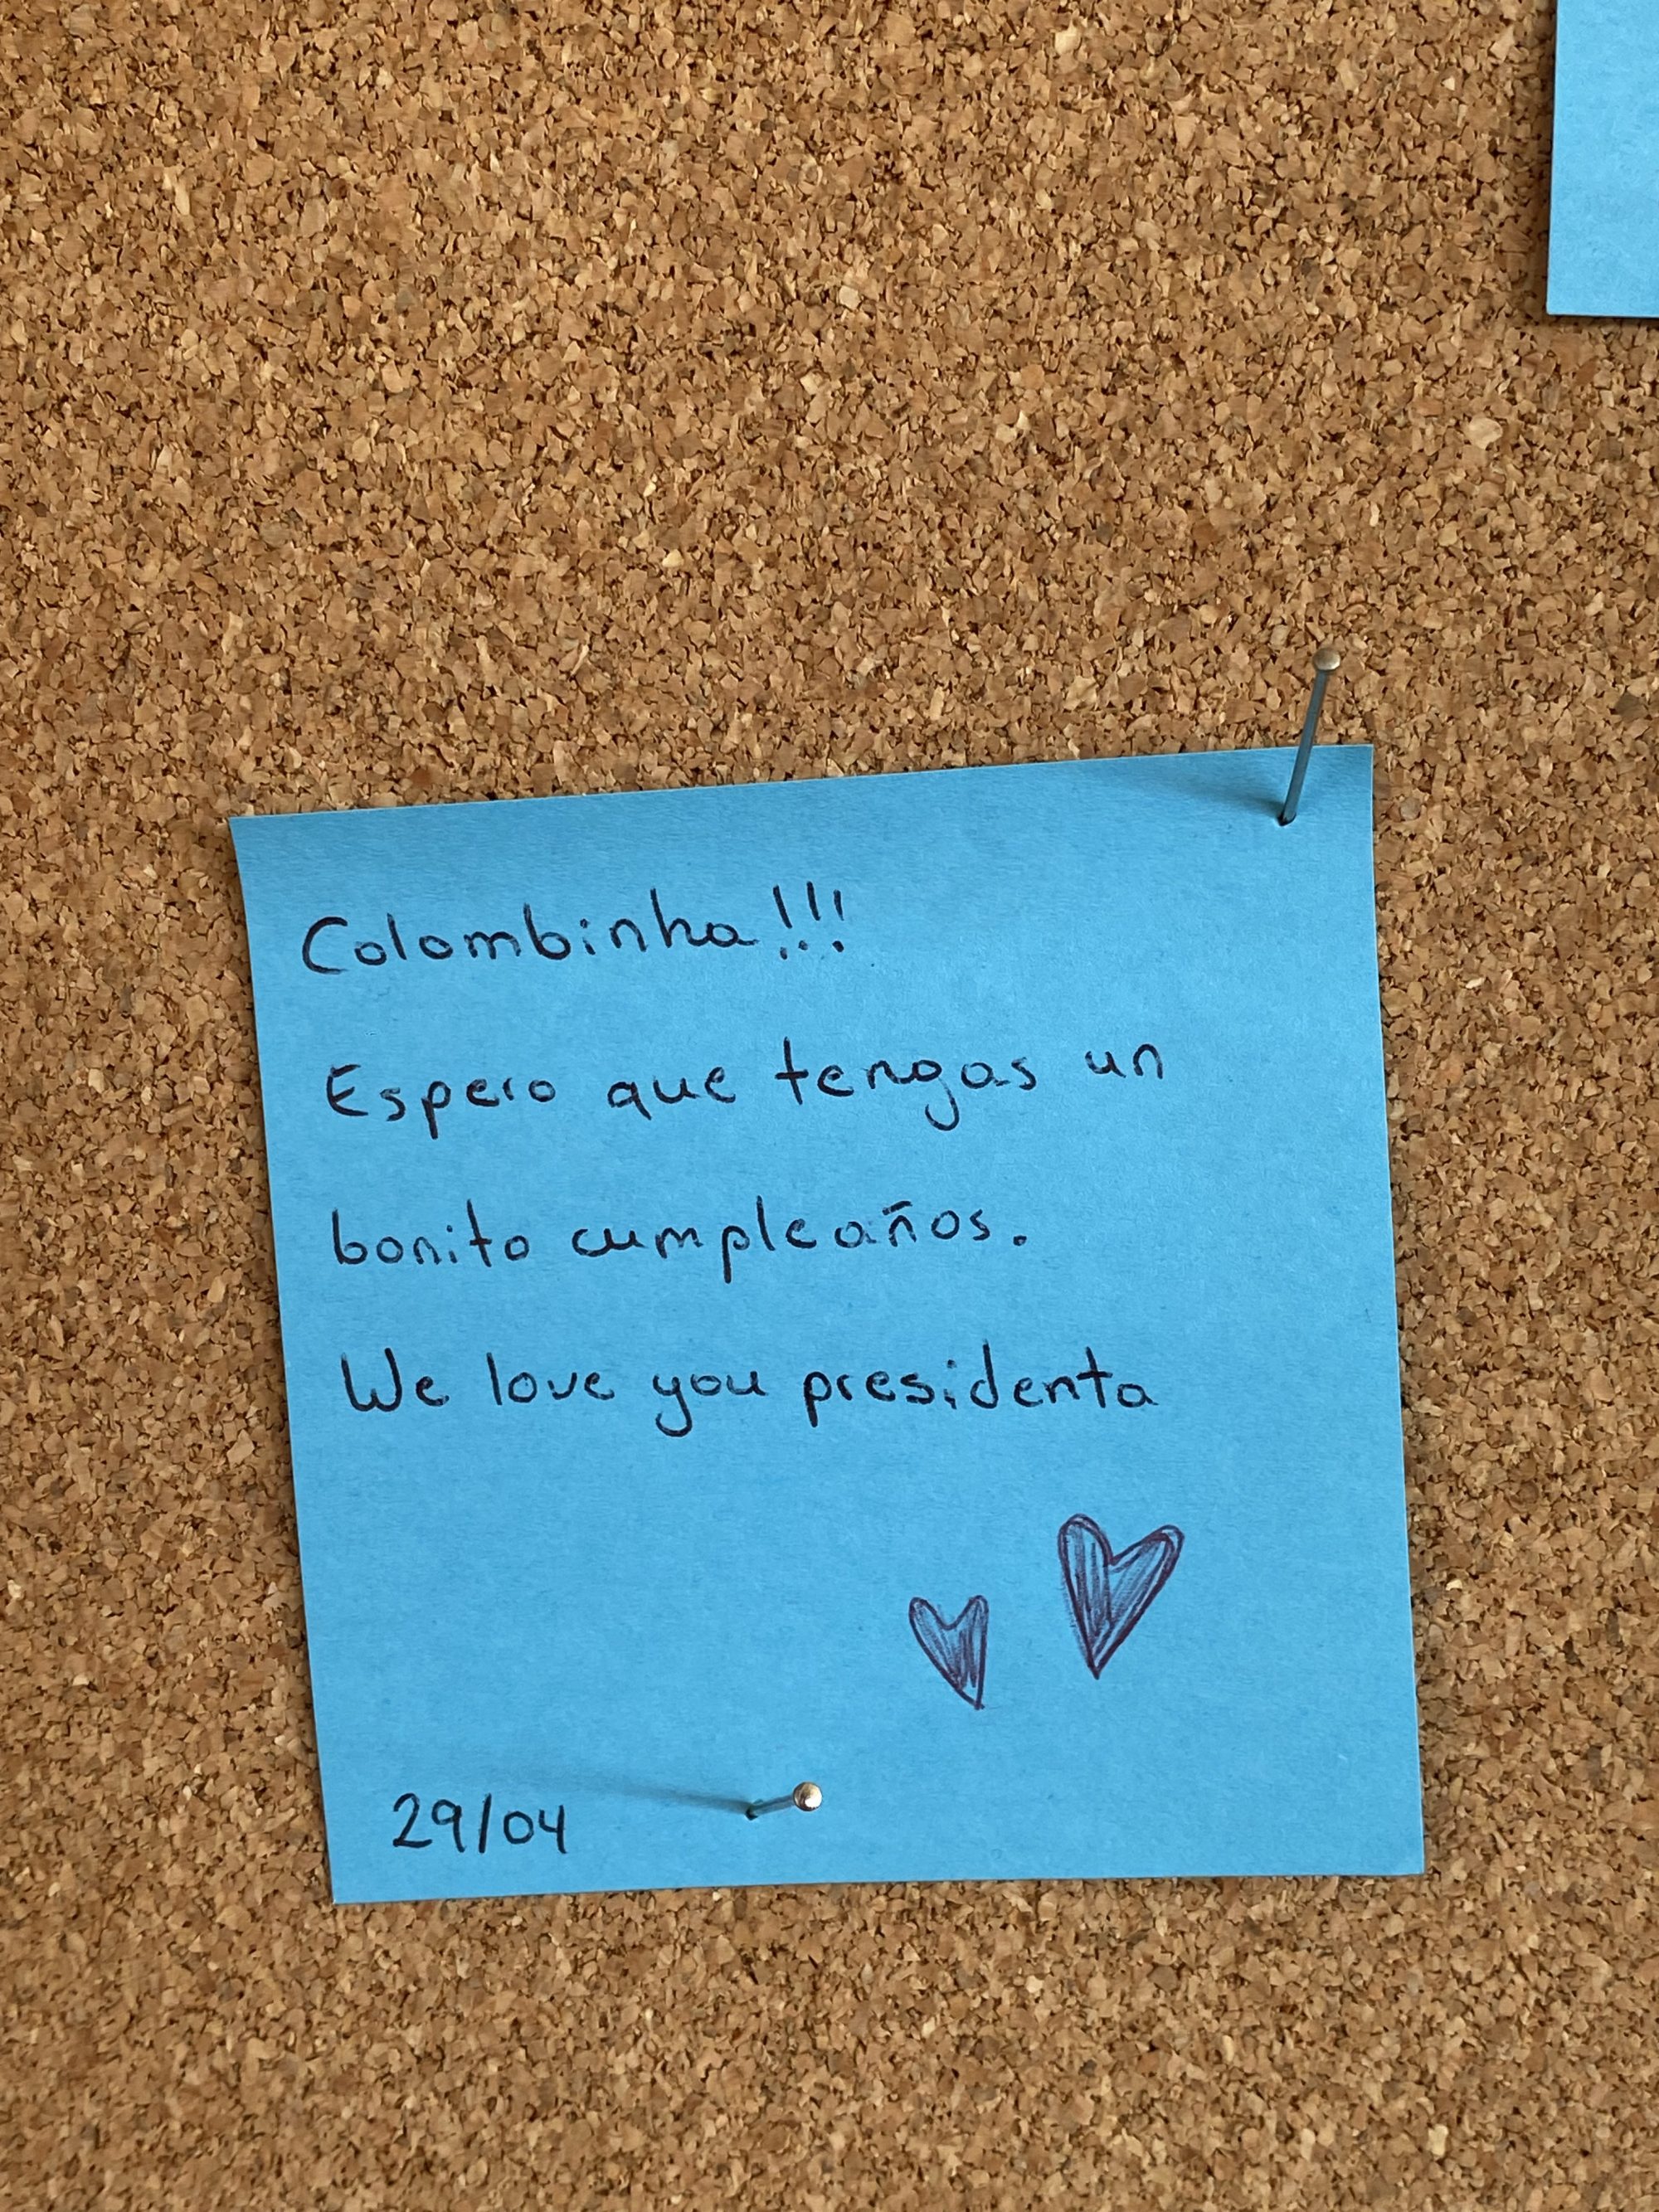 Colombinha!!!
Espero que tengas un
bonito cumpleaños.
We love you presidenta
29/04